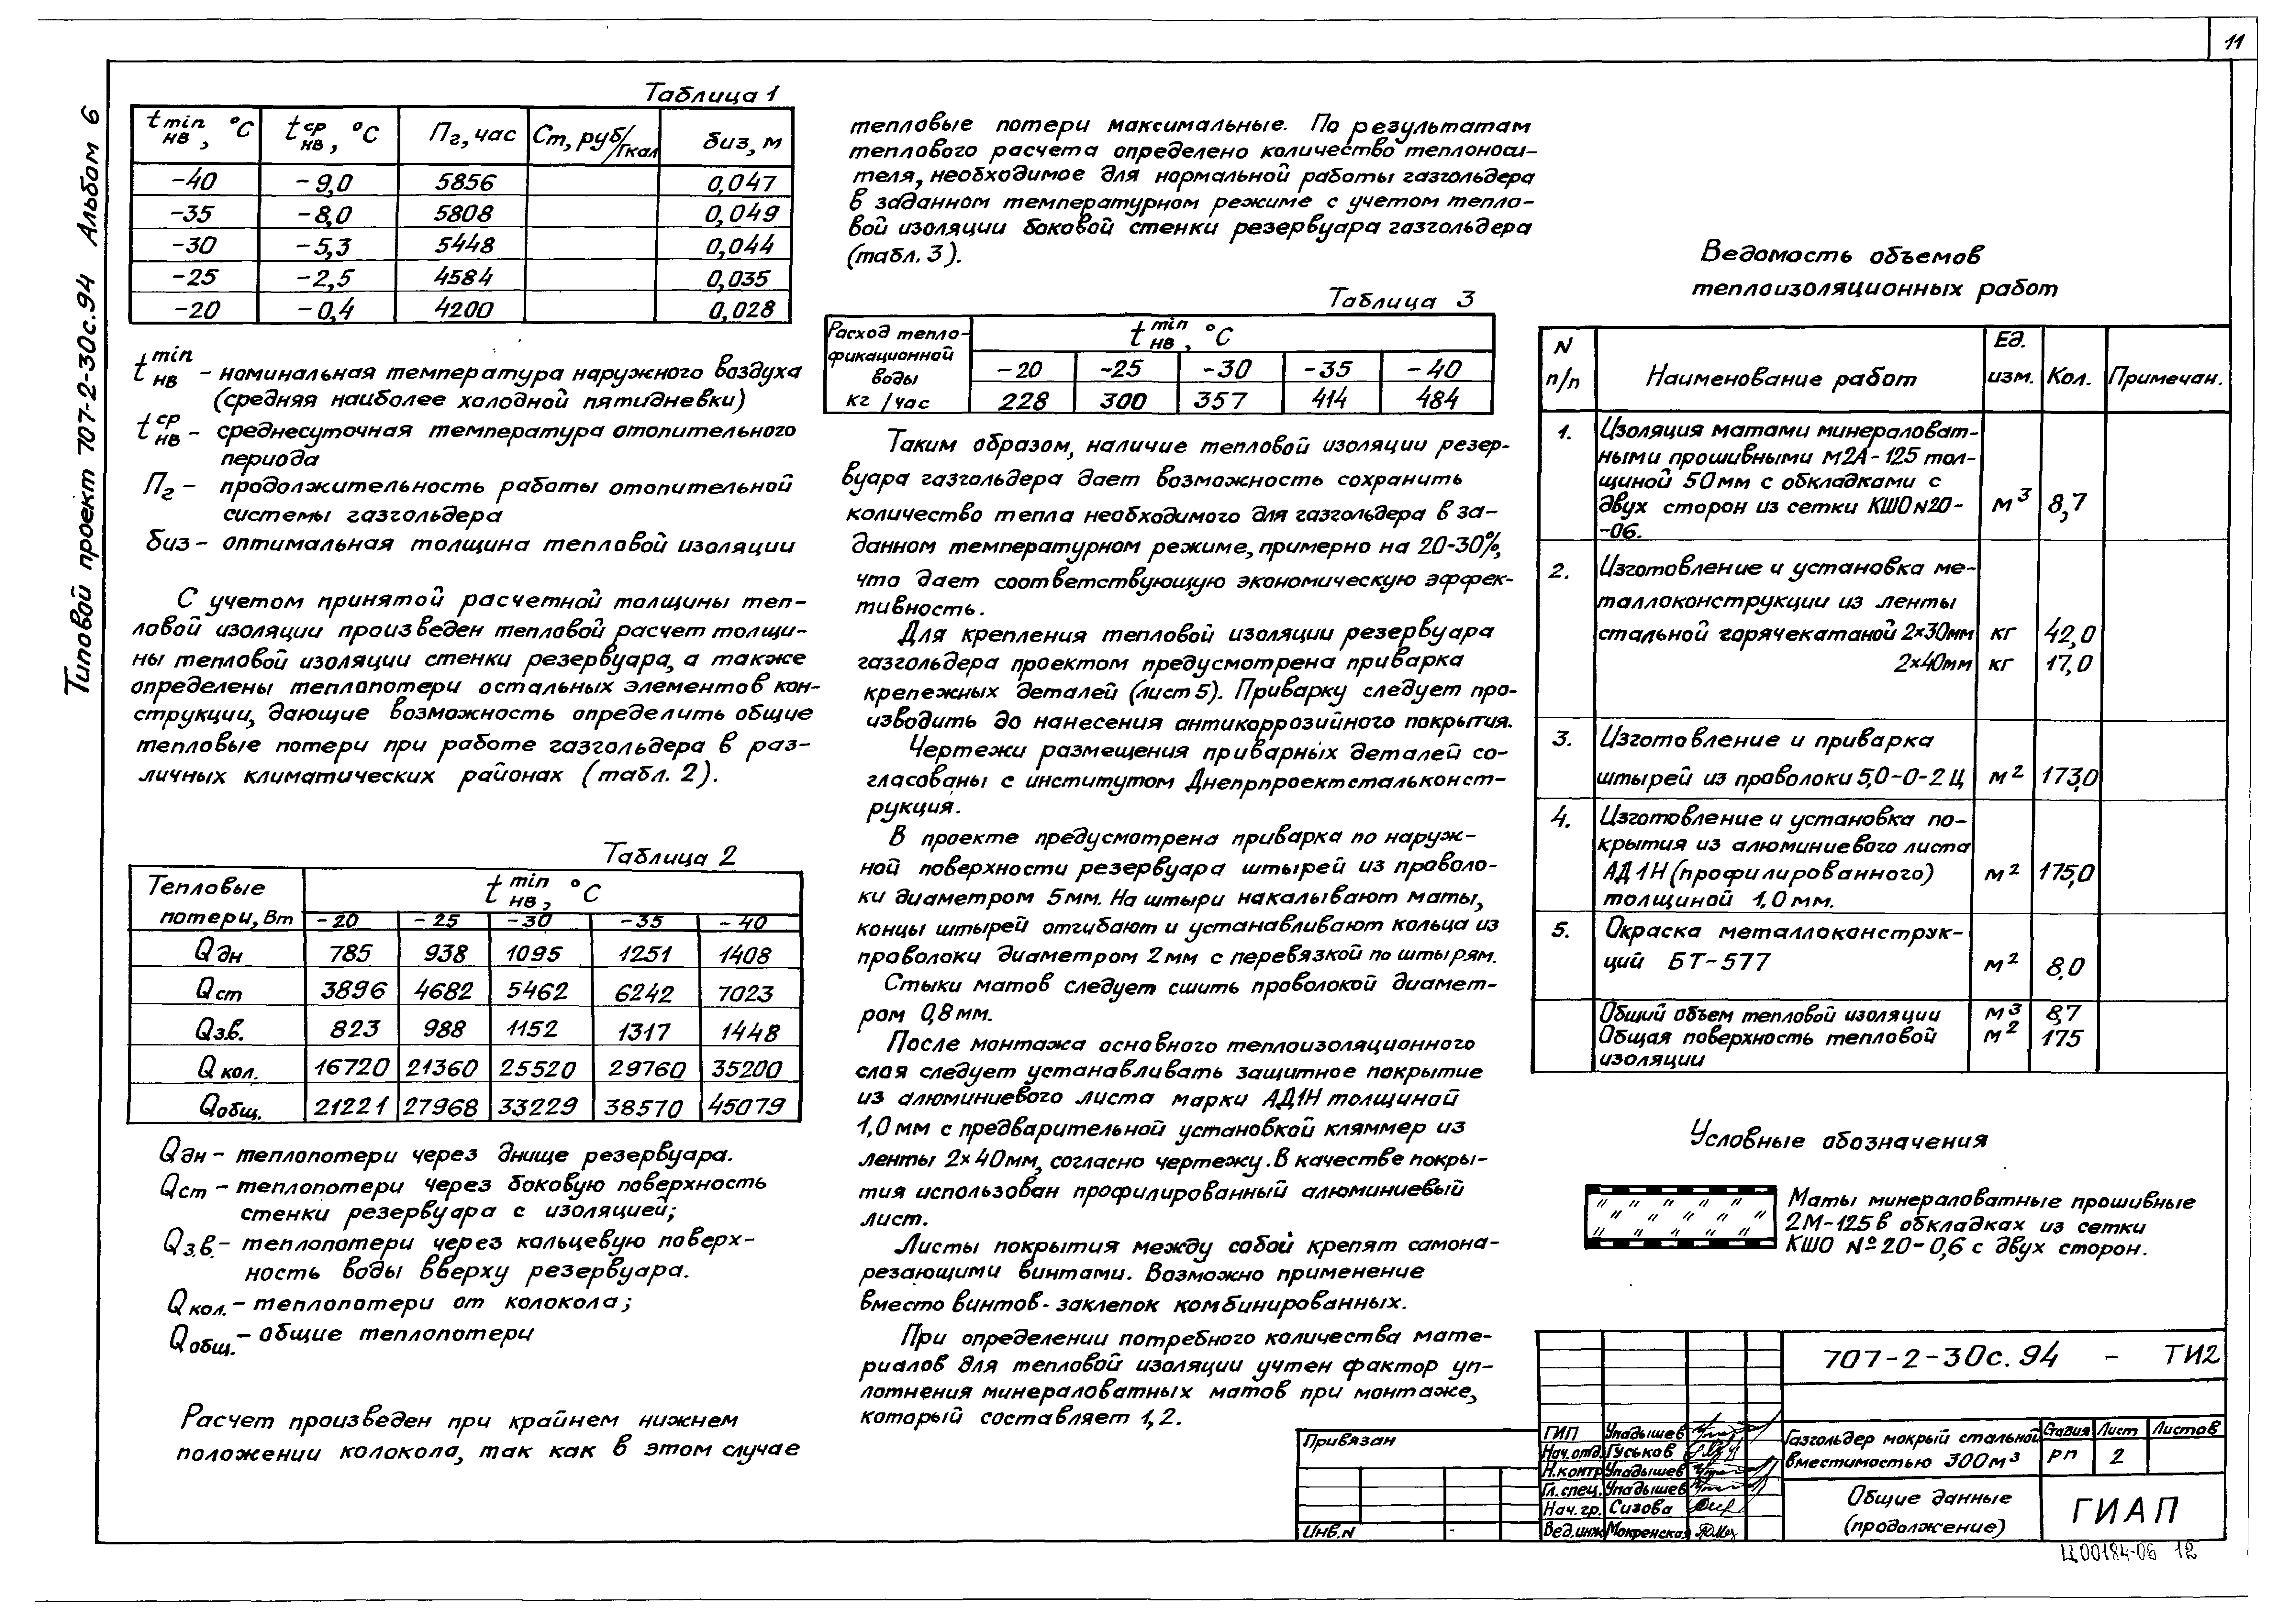 11
Типовой проект 707-2-30с.94 Альбом 6
Таблица 1
t min нв, °С | t ср нв, °С | Пг, час | Ст, руб/Гкал | биз, м
-40 | -9,0 | 5856 | | 0,047
-35 | -8,0 | 5808 | | 0,049
-30 | -5,3 | 5448 | | 0,044
-25 | -2,5 | 4584 | | 0,035
-20 | -0,4 | 4200 | | 0,028
t min нв - номинальная температура наружного воздуха
(средняя наиболее холодной пятидневки)
t ср нв - среднесуточная температура отопительного
периода
Пг - продолжительность работы отопительной
системы газгольдера
биз - оптимальная толщина тепловой изоляции
С учетом принятой расчетной толщины теп-
ловой изоляции произведен тепловой расчет толщи-
ны тепловой изоляции стенки резервуара, а также
определены теплопотери остальных элементов кон-
струкции, дающие возможность определить общие
тепловые потери при работе газгольдера в раз-
личных климатических районах (табл. 2).
Таблица 2
Тепловые потери, Вт | t min нв, °С
-20 | -25 | -30 | -35 | -40
Qдн | 785 | 938 | 1095 | 1251 | 1408
Qст | 3896 | 4682 | 5462 | 6242 | 7023
Qз.в. | 823 | 988 | 1152 | 1317 | 1448
Qкол. | 16720 | 21360 | 25520 | 29760 | 35200
Qобщ. | 21221 | 27968 | 33229 | 38570 | 45079
Qдн - теплопотери через днище резервуара.
Qст - теплопотери через боковую поверхность
стенки резервуара с изоляцией;
Qз.в. - теплопотери через кольцевую поверх-
ность воды вверху резервуара.
Qкол. - теплопотери от колокола;
Qобщ. - общие теплопотери
Расчет произведен при крайнем нижнем
положении колокола, так как в этом случае
тепловые потери максимальные. По результатам
теплового расчета определено количество теплоноси-
теля, необходимое для нормальной работы газгольдера
в заданном температурном режиме с учетом тепло-
вой изоляции боковой стенки резервуара газгольдера
(табл. 3).
Таблица 3
Расход тепло-
фикационной
воды
кг/час
t min нв, °С
-20 | -25 | -30 | -35 | -40
228 | 300 | 357 | 414 | 484
Таким образом, наличие тепловой изоляции резер-
вуара газгольдера дает возможность сохранить
количество тепла необходимого для газгольдера в за-
данном температурном режиме, примерно на 20-30%,
что дает соответствующую экономическую эффек-
тивность.
Для крепления тепловой изоляции резервуара
газгольдера проектом предусмотрена приварка
крепежных деталей (лист 5). Приварку следует про-
изводить до нанесения антикоррозийного покрытия.
Чертежи размещения приварных деталей со-
гласованы с институтом Днепрпроектстальконст-
рукция.
В проекте предусмотрена приварка по наруж-
ной поверхности резервуара штырей из проволо-
ки диаметром 5мм. На штыри накалывают маты,
концы штырей отгибают и устанавливают кольца из
проволоки диаметром 2мм с перевязкой по штырям.
Стыки матов следует сшить проволокой диамет-
ром 0,8мм.
После монтажа основного теплоизоляционного
слоя следует устанавливать защитное покрытие
из алюминиевого листа марки АД1Н толщиной
1,0мм с предварительной установкой кляммер из
ленты 2×40мм, согласно чертежу. В качестве покры-
тия использован профилированный алюминиевый
лист.
Листы покрытия между собой крепят самона-
резающими винтами. Возможно применение
вместо винтов- заклепок комбинированных.
При определении потребного количества мате-
риалов для тепловой изоляции учтен фактор уп-
лотнения минераловатных матов при монтаже,
который составляет 1,2.
Ведомость объемов
теплоизоляционных работ
N п/п | Наименование работ | Ед. изм. | Кол. | Примечан.
1. Изоляция матами минераловат-
ными прошивными М2А-125 тол-
щиной 50мм с обкладками с
двух сторон из сетки КШО N20- | м³ | 8,7
-06.
2. Изготовление и установка ме-
таллоконструкции из ленты
стальной горячекатаной 2×30мм | кг | 42,0
2×40мм | кг | 17,0
3. Изготовление и приварка
штырей из проволоки 5,0-0-2Ц | м² | 173,0
4. Изготовление и установка по-
крытия из алюминиевого листа
АД1Н (профилированного) | м² | 175,0
толщиной 1,0мм.
5. Окраска металлоконструк-
ций БТ-577 | м² | 8,0
Общий объем тепловой изоляции | м³ | 8,7
Общая поверхность тепловой | м² | 175
изоляции
Условные обозначения
Маты минераловатные прошивные
2М-125 в обкладках из сетки
КШО №20-0,6 с двух сторон.
707-2-30с.94 - ТИ2
Привязан
Инв.N
ГИП Упадышев
Нач.отд. Гуськов
Н.контр Упадышев
Гл.спец. Упадышев
Нач.гр. Сизова
Вед.инж Мокренская
Газгольдер мокрый стальной
вместимостью 300м³
Стадия | Лист | Листов
РП | 2
Общие данные
(продолжение)
ГИАП
Ц00184-06 12